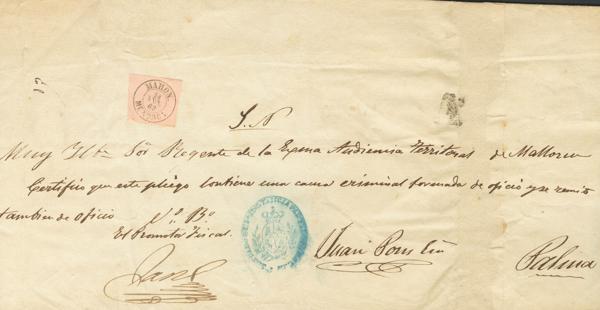 MAHON
S. N
Muy Ilte Sör Regente de la Exma Audiencia Territorial de Mallorca
Certifico que este pliego contiene una causa criminal formada de oficio y se remite
tambien de oficio
Vº Bº
El Promotor Fiscal.
Juan Pons
Palma